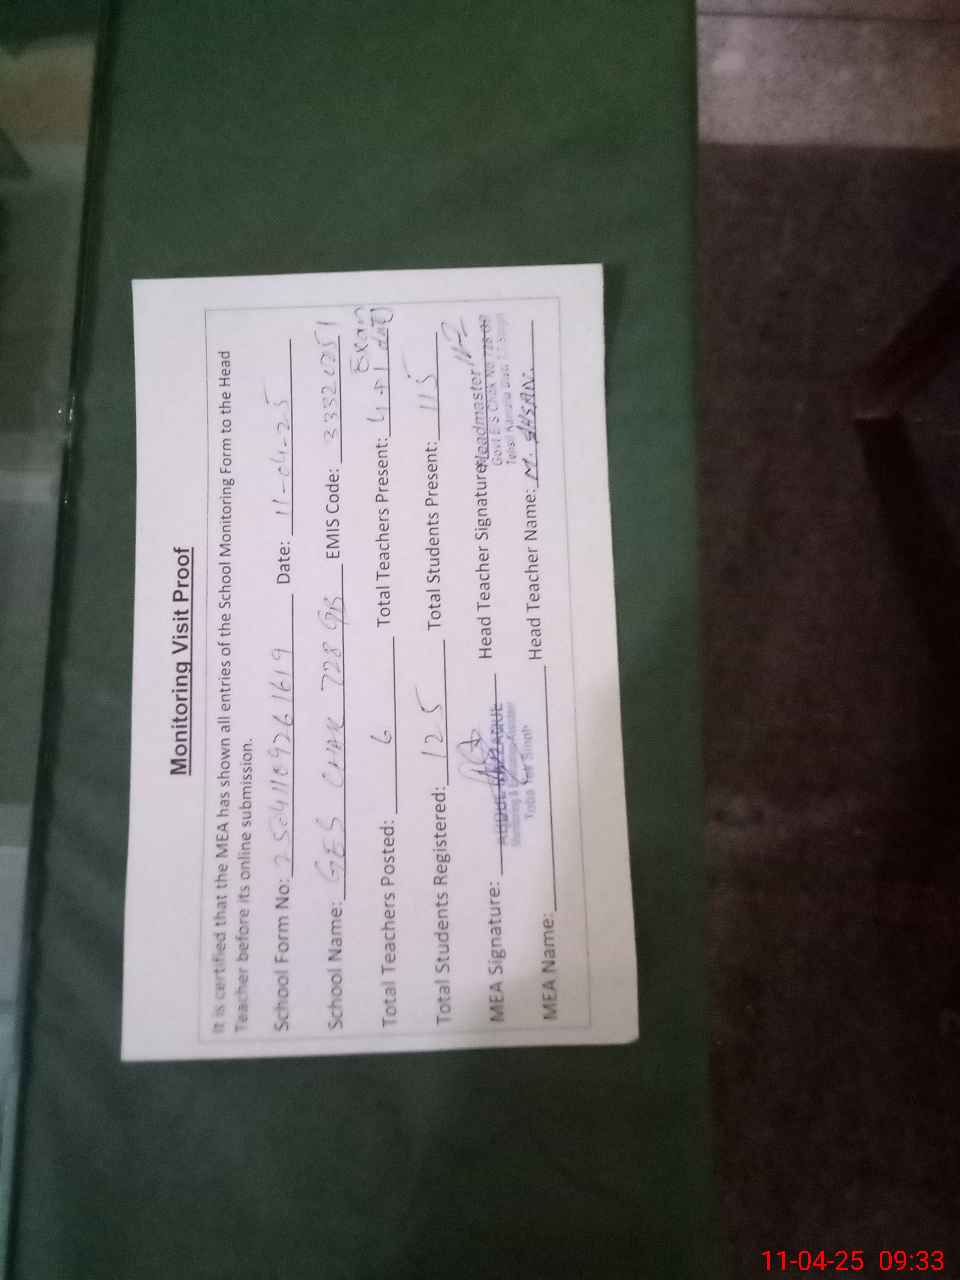 Monitoring Visit Proof
It is certified that the MEA has shown all entries of the School Monitoring Form to the Head
Teacher before its online submission.
School Form No: Date: 11-04-25
School Name: GES CHAK 728 GB EMIS Code:
Total Teachers Posted: 6 Total Teachers Present: 4+1 Exam duty
Total Students Registered: 125 Total Students Present: 115
MEA Signature: Head Teacher Signature:
Headmaster
Govt E/S Chak No 728 GB
Tehsil Kamalia Distt T.T.Singh
ABDUL
Monitoring &
Toba Tek Singh
MEA Name: Head Teacher Name: M. AHSAN.
11-04-25 09:33